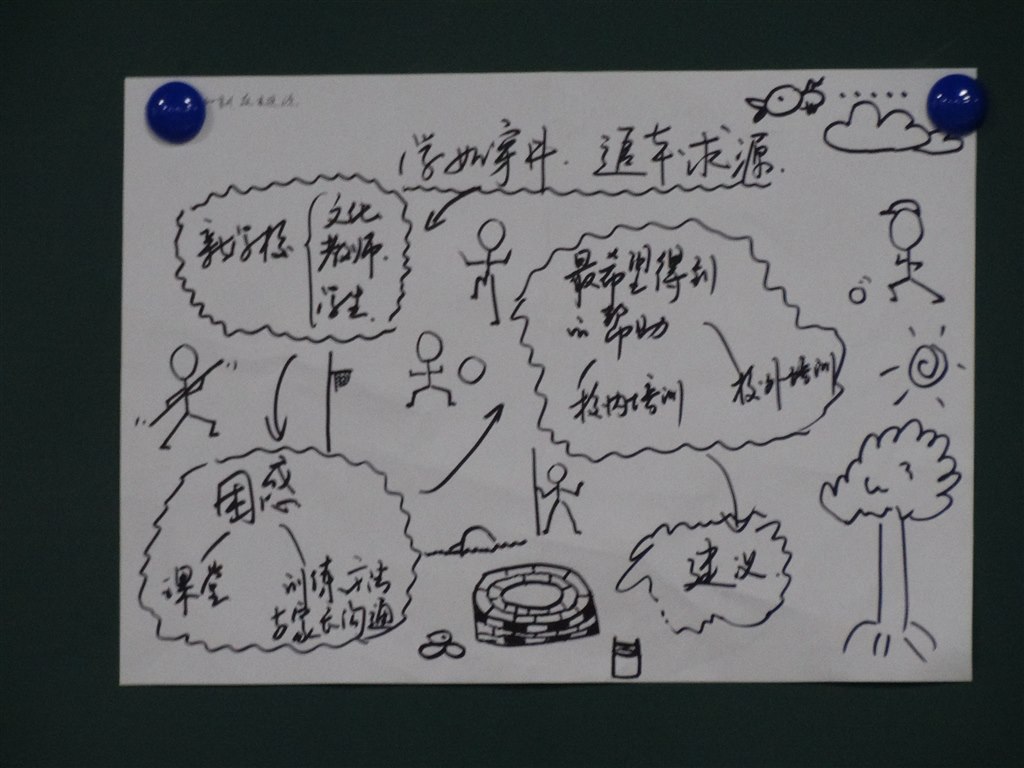 追本求源
新学校
文化
教师
学生
最希望得到
的帮助
校内培训
校外培训
困惑
课堂
训练方法
与家长沟通
建议